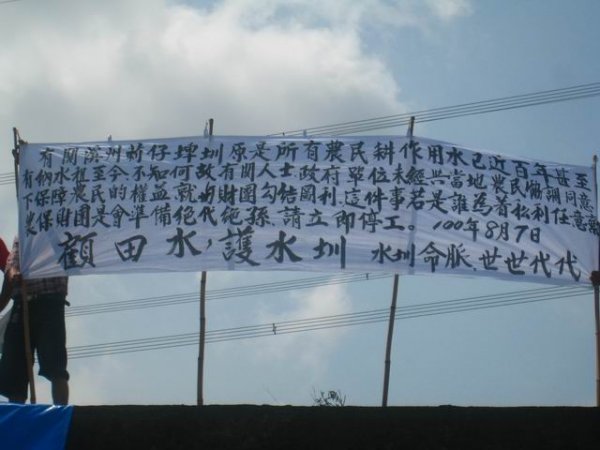 有關溪州莿仔埤圳原是所有農民耕作用水已近百年甚至
有納水租至今不知何故有關人士政府單位未經當地農民協調同意
下保障農民的權益就與財團勾結圖利.這件事若是誰為首私利任意
農保財團是會準備絕代絶孫.請立即停工。100年8月7日
顧田水，護水圳 水圳命脈.世世代代